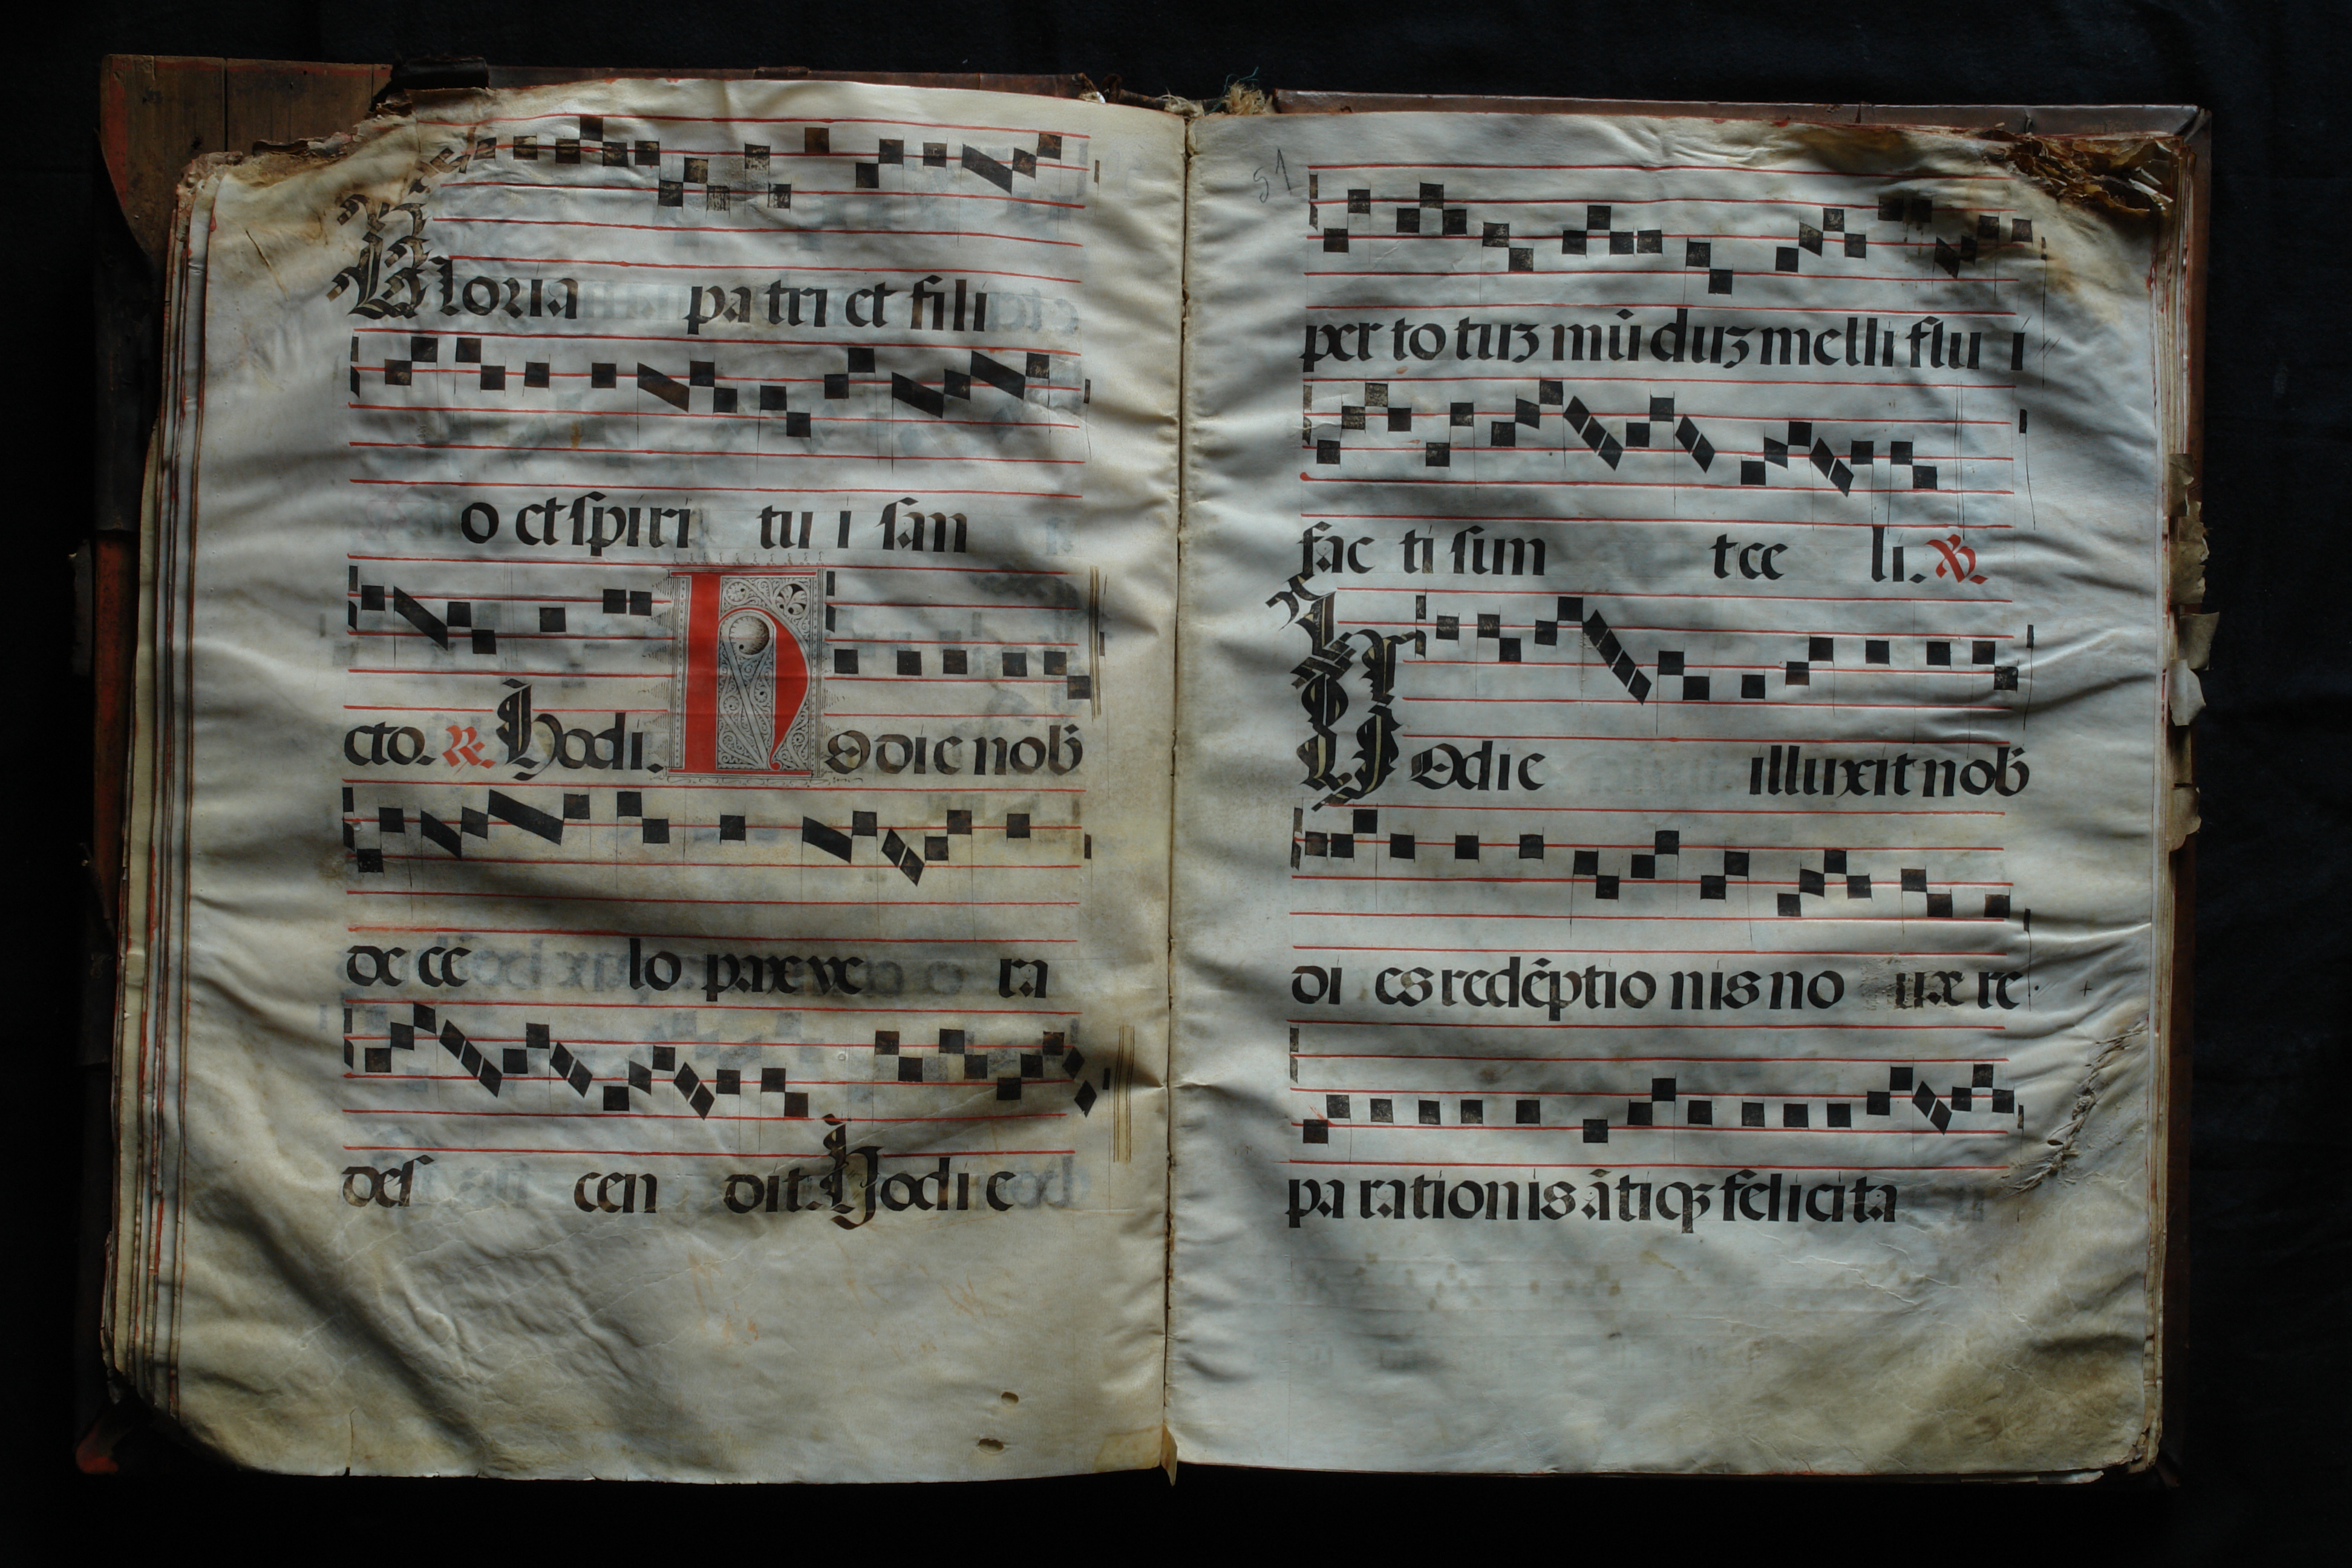 Gloria pa tri et fili
o et spiri tu i san
cto. R. Hodi. Hodie nob̄
de ce lo pax ve ra
des cen dit. Hodie
51
per to tuʒ mū duʒ melli flu i
fac ti sunt ce li. V.
Hodie illuxit nob̄
di es redēptio nis no ux re
pa rationis ātiqʒ felicita